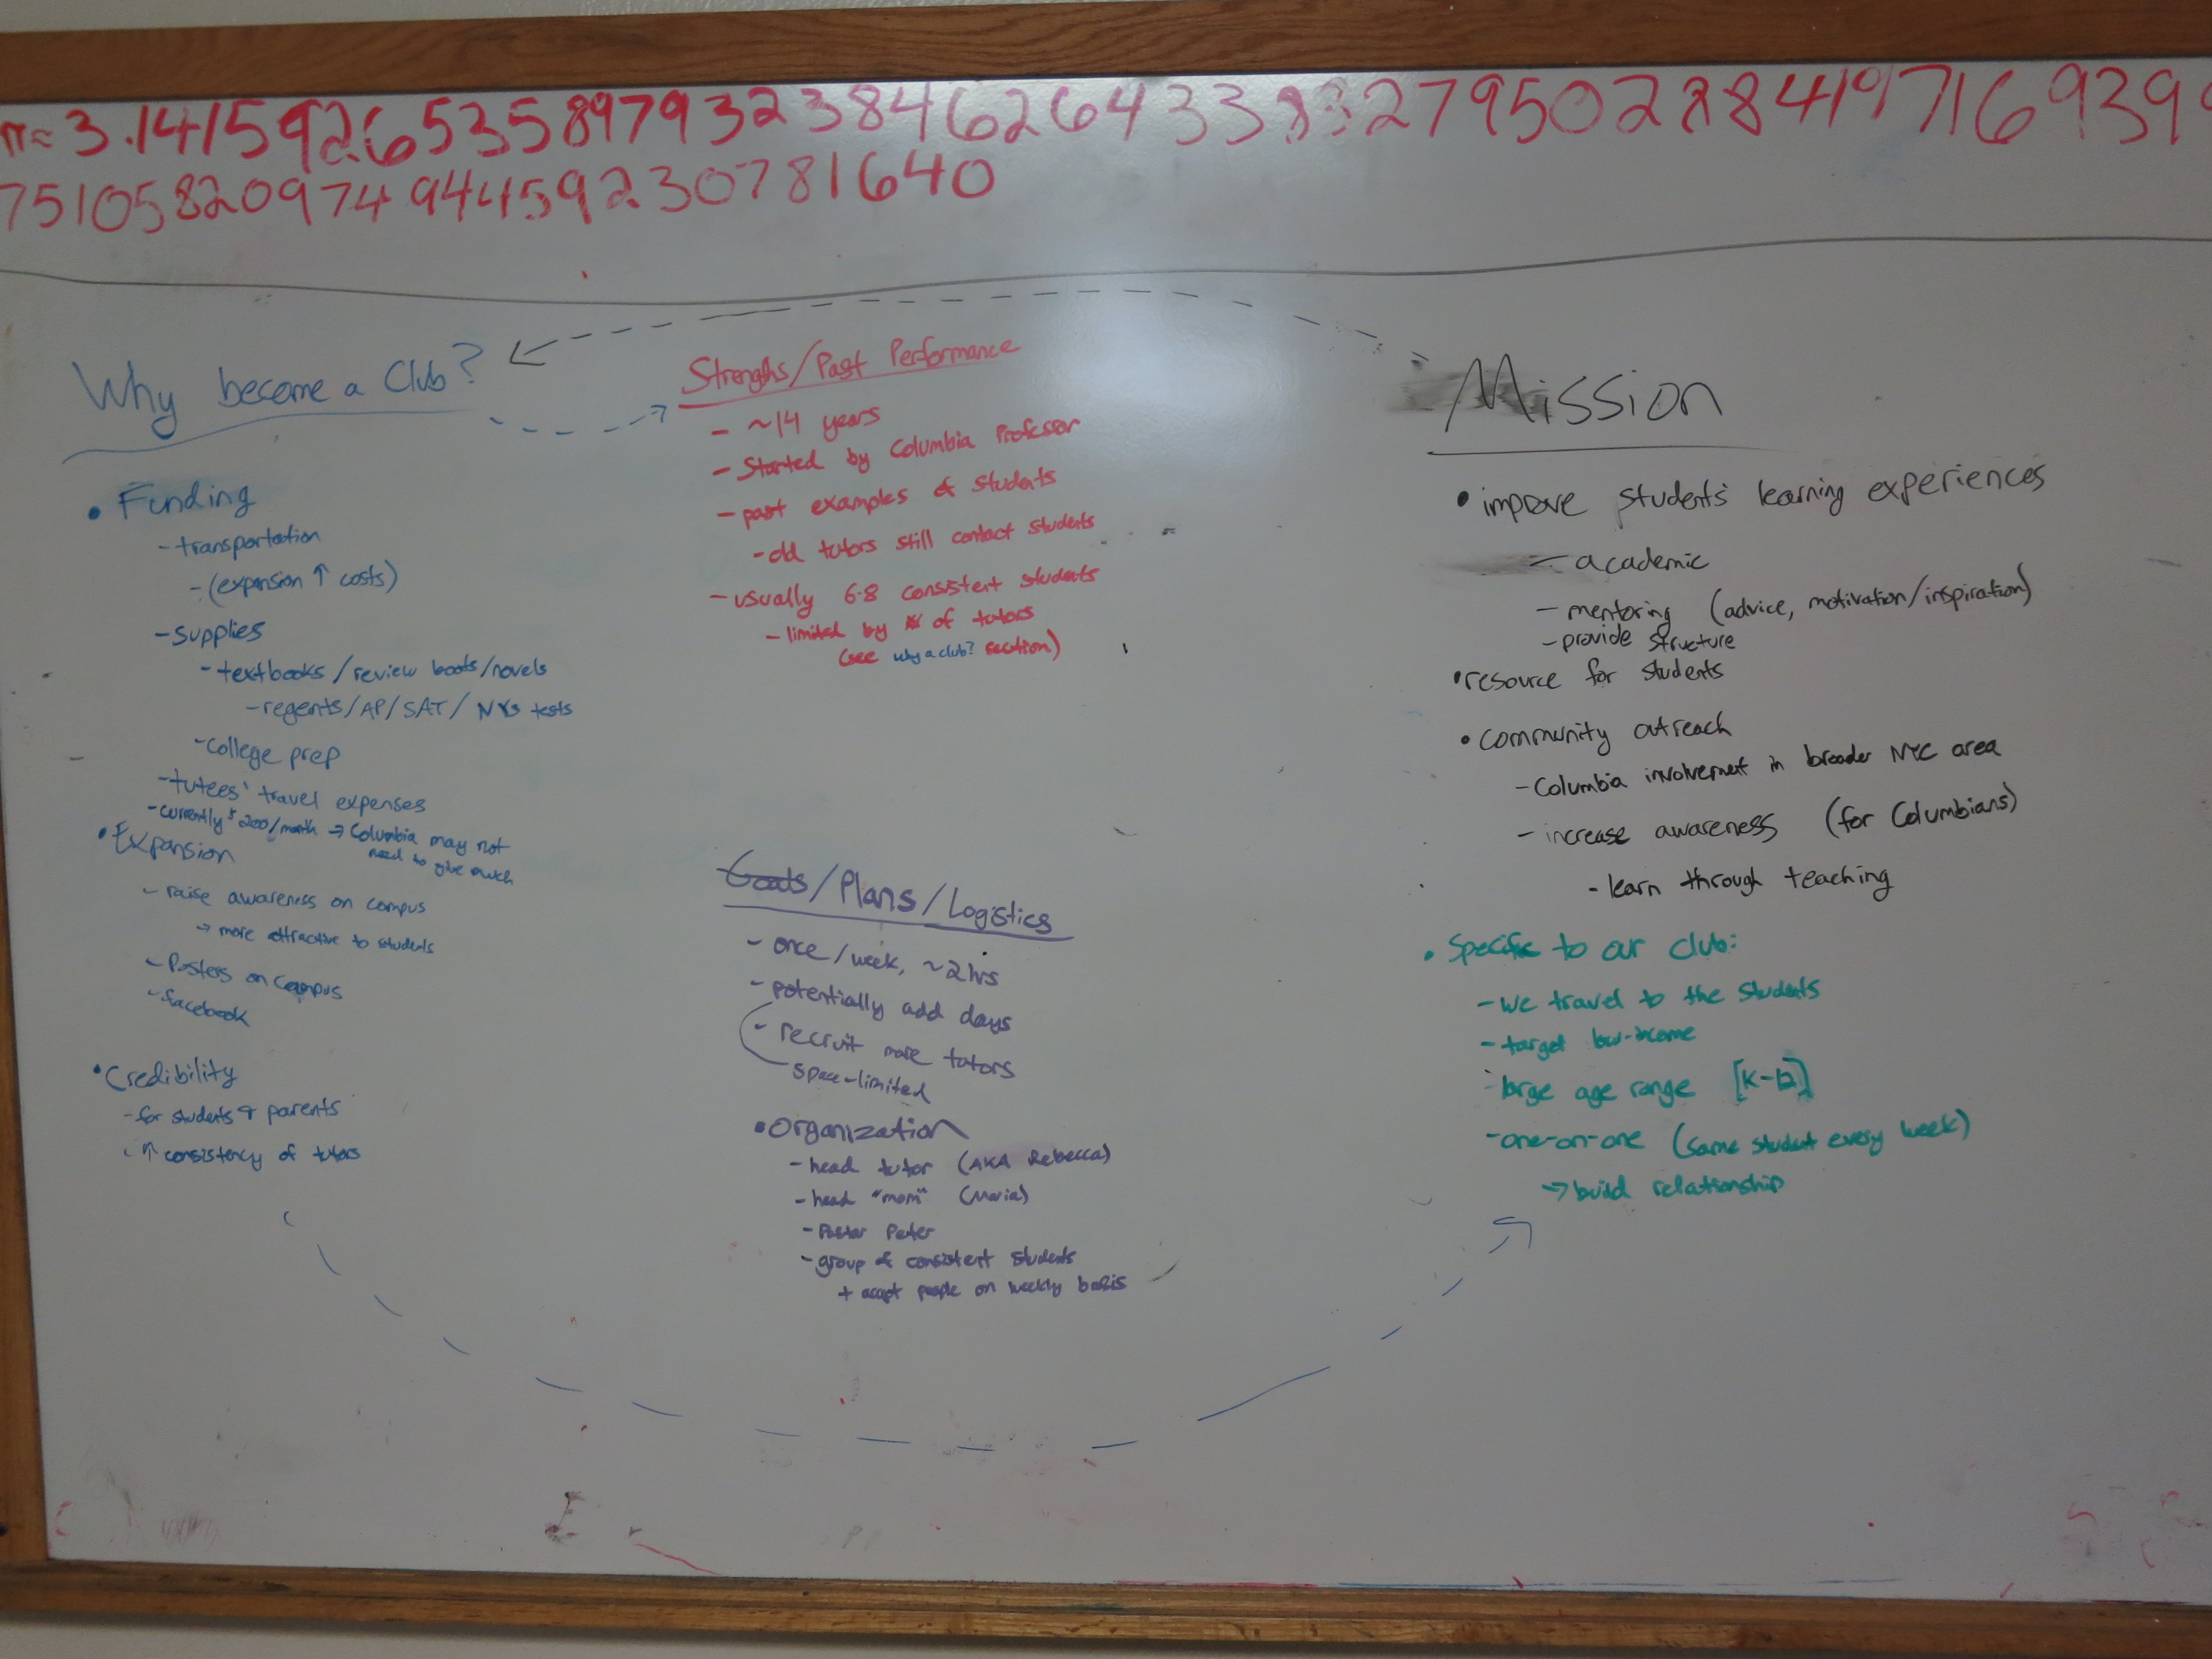 π≈ 3.141592653589793238462643383279502884197169399
7510582097494459230781640
Why become a Club?
• Funding
- transportation
- (expansion ↑ costs)
- supplies
- textbooks / review books/novels
- regents/AP/SAT/ NYS tests
- college prep
- tutees' travel expenses
- currently $200/month → Columbia may not
need to give much
• Expansion
- raise awareness on campus
→ more attractive to students
- Posters on campus
- facebook
• Credibility
- for students & parents
- ↑ consistency of tutors
Strengths/Past Performance
- ~14 years
- Started by Columbia Professor
- past examples of students
- old tutors still contact students
- usually 6-8 consistent students
- limited by # of tutors
(see why a club? section)
Goals/Plans/Logistics
- once/week, ~2hrs
- potentially add days
- recruit more tutors
space-limited
• Organization
- head tutor (AKA Rebecca)
- head "mom" (Maria)
- Pastor Peter
- group of consistent students
+ accept people on weekly basis
Mission
• improve students' learning experiences
- academic
- mentoring (advice, motivation/inspiration)
- provide structure
• resource for students
• community outreach
- Columbia involvement in broader NYC area
- increase awareness (for Columbians)
- learn through teaching
• Specific to our club:
- we travel to the students
- target low-income
- large age range [K-12]
- one-on-one (same student every week)
→ build relationship